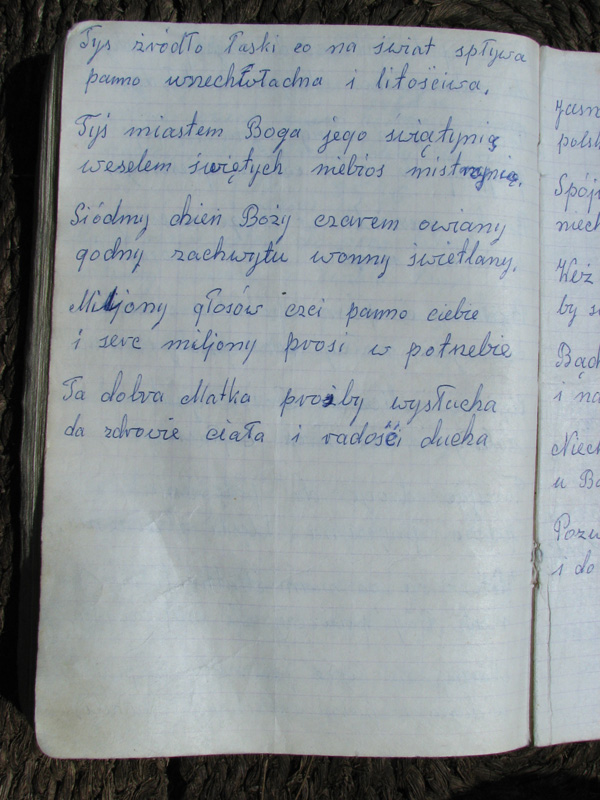 Tyś źródło łaski co na świat spływa
panno wszechwładna i litościwa.
Tyś miastem Boga jego świątynią
weselem świętych niebios mistrzynią.
Siódmy dzień Boży czarem owiany
godny zachwytu wonny świetlany.
Miljony głosów czci panno ciebie
i serc miljony prosi w potrzebie
Ta dobra Matka prośby wysłucha
da zdrowie ciała i radości ducha
Jasn
polsk
Spój
niech
Keż
by s
Bąd
i na
Niech
u Bo
Pozw
i do